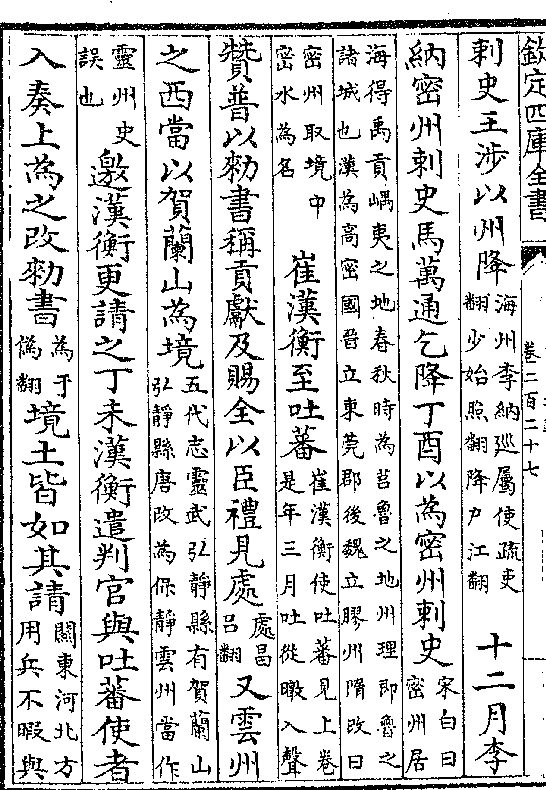 欽定四庫全書 卷二百二十七
刺史王涉以州降海州李納巡屬使疏吏翻少始照翻降户江翻十二月李
納密州刺史馬萬通乞降丁酉以為密州刺史宋白曰密州居
海得禹貢嵎夷之地春秋時為莒魯之地州理即魯之
諸城也漢為高密國晉立東莞郡後魏立膠州隋改曰
密州取境中密水為名崔漢衡至吐蕃崔漢衡使吐蕃見上卷是年三月吐從暾入聲
贊普以勑書稱貢獻及賜全以臣禮見處處昌呂翻又雲州
之西當以賀蘭山為境五代志靈武弘靜縣有賀蘭山弘靜縣唐改為保靜雲州當作
靈州史誤也邀漢衡更請之丁未漢衡遣判官與吐蕃使者
入奏上為之改勑書為于偽翻境土皆如其請關東河北方用兵不暇與